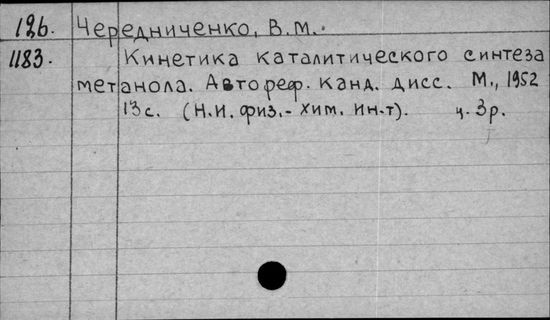 126. Чередниченко, В.М.
1183. Кинетика каталитического синтеза
метанола. Автореф. канд. дисс. М., 1952
13с. (Н.И. физ.-хим. ин-т). ц. 3р.